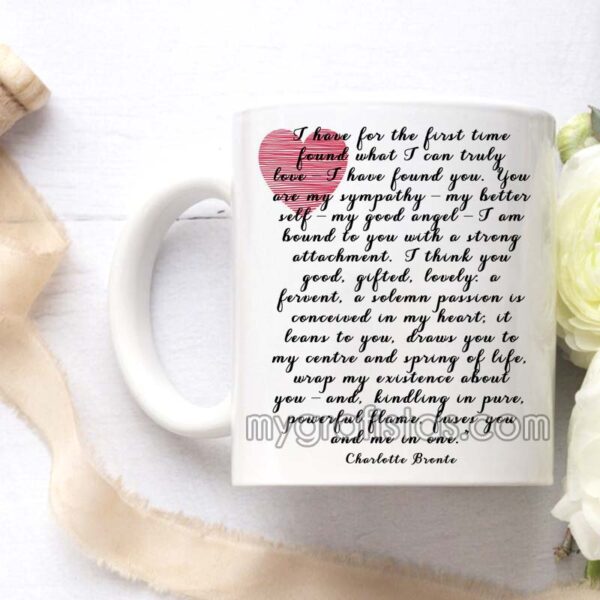 I have for the first time
found what I can truly
love – I have found you. You
are my sympathy – my better
self – my good angel – I am
bound to you with a strong
attachment. I think you
good, gifted, lovely: a
fervent, a solemn passion is
conceived in my heart; it
leans to you, draws you to
my centre and spring of life,
wrap my existence about
you – and, kindling in pure,
powerful flame, fuses you
and me in one."
Charlotte Bronte